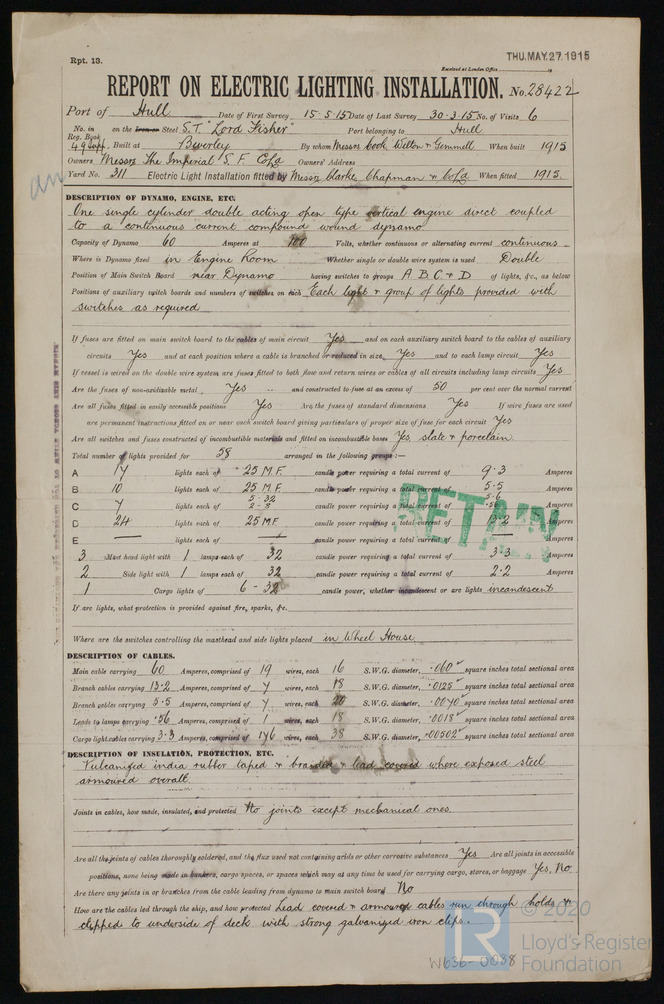 Rpt. 13.
THU. MAY. 27. 1915
Received at London Office
REPORT ON ELECTRIC LIGHTING INSTALLATION. No. 28422
Port of Hull Date of First Survey 15.5.15 Date of Last Survey 30.3.15 No. of Visits 6
No. in Reg. Book on the Iron or Steel S.T. "Lord Fisher" Port belonging to Hull
Built at Beverley By whom Messrs Cook, Welton & Gemmell When built 1915
Owners Messrs The Imperial S. F. Co Ld Owners' Address
Yard No. 311 Electric Light Installation fitted by Messrs Clarke, Chapman & Co Ld When fitted 1915.
DESCRIPTION OF DYNAMO, ENGINE, ETC.
One single cylinder double acting open type vertical engine direct coupled
to a continuous current compound wound dynamo
Capacity of Dynamo 60 Amperes at 100 Volts, whether continuous or alternating current continuous
Where is Dynamo fixed in Engine Room Whether single or double wire system is used Double
Position of Main Switch Board near Dynamo having switches to groups A B C & D of lights, &c., as below
Positions of auxiliary switch boards and numbers of switches on each Each light & group of lights provided with
switches as required
If fuses are fitted on main switch board to the cables of main circuit Yes and on each auxiliary switch board to the cables of auxiliary
circuits Yes and at each position where a cable is branched or reduced in size Yes and to each lamp circuit Yes
If vessel is wired on the double wire system are fuses fitted to both flow and return wires or cables of all circuits including lamp circuits Yes
Are the fuses of non-oxidizable metal Yes and constructed to fuse at an excess of 50 per cent over the normal current
Are all fuses fitted in easily accessible positions Yes Are the fuses of standard dimensions Yes If wire fuses are used
are permanent instructions fitted on or near each switch board giving particulars of proper size of fuse for each circuit Yes
Are all switches and fuses constructed of incombustible materials and fitted on incombustible bases Yes, slate & porcelain
Total number of lights provided for 58 arranged in the following groups:—
A 17 lights each of 25 M.F. candle power requiring a total current of 9.3 Amperes
B 10 lights each of 25 M.F. candle power requiring a total current of 5.5 Amperes
C 7 lights each of 5-32 2-8 candle power requiring a total current of 5.6 .56 Amperes
D 24 lights each of 25 M.F. candle power requiring a total current of 13.2 Amperes
E — lights each of — candle power requiring a total current of — Amperes
3 Mast head light with 1 lamps each of 32 candle power requiring a total current of 3.3 Amperes
2 Side light with 1 lamps each of 32 candle power requiring a total current of 2.2 Amperes
1 Cargo lights of 6 - 32 candle power, whether incandescent or arc lights incandescent
RETAIN
If arc lights, what protection is provided against fire, sparks, &c.
Where are the switches controlling the masthead and side lights placed in Wheel House
DESCRIPTION OF CABLES.
Main cable carrying 60 Amperes, comprised of 19 wires, each 16 S.W.G. diameter, .060 square inches total sectional area
Branch cables carrying 13.2 Amperes, comprised of 7 wires, each 18 S.W.G. diameter, .0125 square inches total sectional area
Branch cables carrying 5.5 Amperes, comprised of 7 wires, each 20 S.W.G. diameter, .0070 square inches total sectional area
Leads to lamps carrying .56 Amperes, comprised of 1 wires, each 18 S.W.G. diameter, .0018 square inches total sectional area
Cargo light cables carrying 3.3 Amperes, comprised of 176 wires, each 38 S.W.G. diameter, .00502 square inches total sectional area
DESCRIPTION OF INSULATION, PROTECTION, ETC.
Vulcanized india rubber taped & braided & lead covered where exposed steel
armoured overall.
Joints in cables, how made, insulated, and protected No joints except mechanical ones.
Are all the joints of cables thoroughly soldered, and the flux used not containing acids or other corrosive substances Yes Are all joints in accessible
positions, none being made in bunkers, cargo spaces, or spaces which may at any time be used for carrying cargo, stores, or baggage Yes, No
Are there any joints in or branches from the cable leading from dynamo to main switch board No
How are the cables led through the ship, and how protected Lead covered & armoured cables run through holds &
clipped to underside of deck with strong galvanized iron clips.
© 2020
LR
Lloyd's Register
Foundation
W636-0088